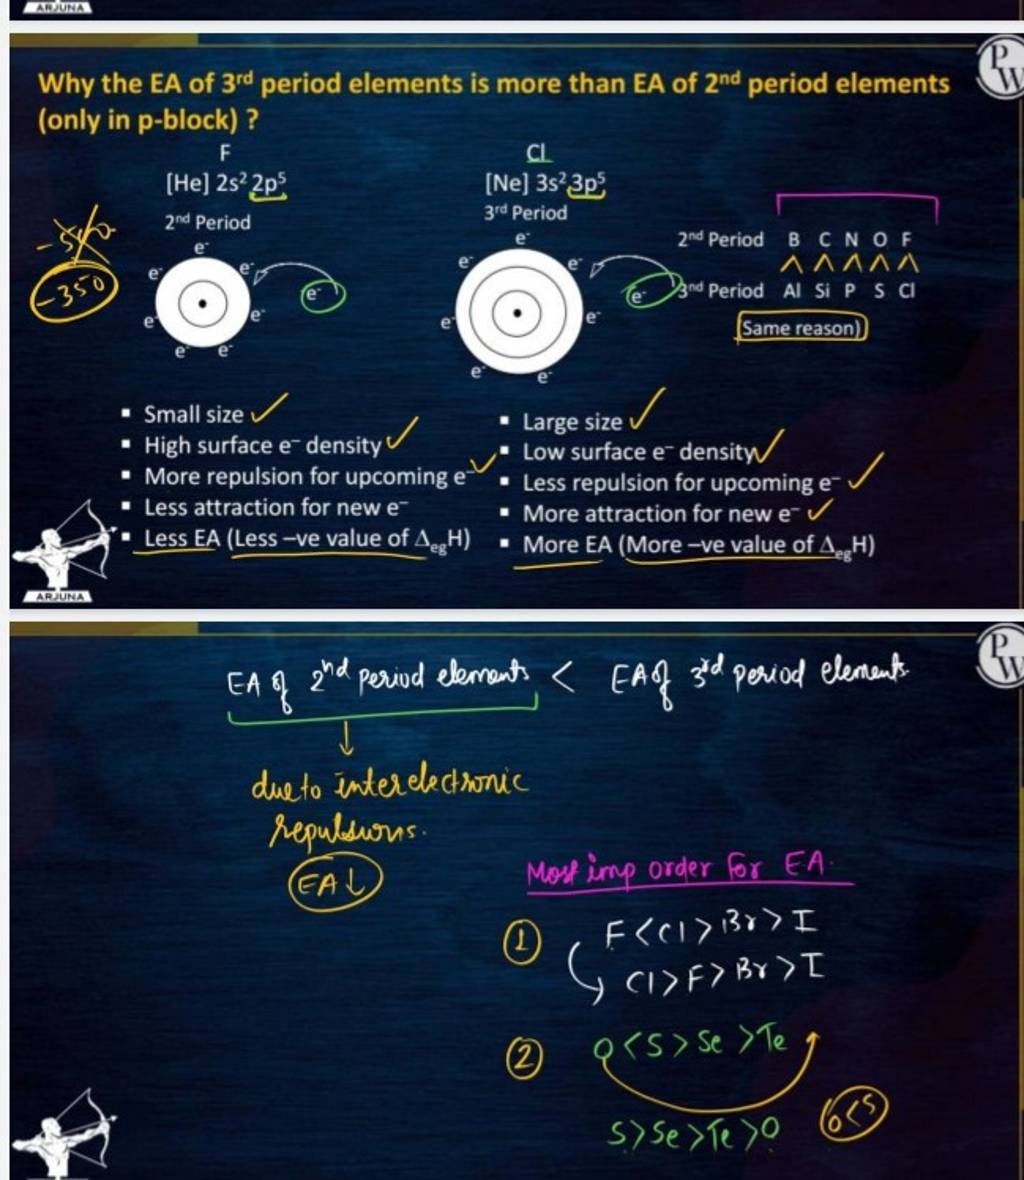 ARJUNA
PW
Why the EA of 3rd period elements is more than EA of 2nd period elements
(only in p-block) ?
F
[He] 2s² 2p⁵
2nd Period
Cl
[Ne] 3s² 3p⁵
3rd Period
-350
e⁻ e⁻ e⁻ e⁻ e⁻ e⁻ e⁻ e⁻
e⁻ e⁻ e⁻ e⁻ e⁻ e⁻ e⁻ e⁻
2nd Period B C N O F
^ ^ ^ ^ ^
3nd Period Al Si P S Cl
Same reason)
▪ Small size ✓
▪ High surface e⁻ density ✓
▪ More repulsion for upcoming e⁻ ✓
▪ Less attraction for new e⁻
▪ Less EA (Less –ve value of ΔegH)
▪ Large size ✓
▪ Low surface e⁻ density ✓
▪ Less repulsion for upcoming e⁻ ✓
▪ More attraction for new e⁻ ✓
▪ More EA (More –ve value of ΔegH)
ARJUNA
PW
EA of 2nd period elements < EA of 3rd period elements
↓
due to interelectronic
repulsions.
EA↓
Most imp order for EA.
① F<Cl>Br>I
Cl>F>Br>I
② O<S>Se>Te
S>Se>Te>O
O<S